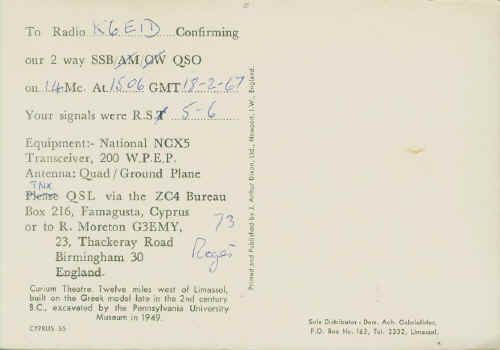 To Radio K6EID Confirming
our 2 way SSB/AM/CW QSO
on 14 Mc. At 1506 GMT 18-2-67
Your signals were R.S.T 5-6
Equipment:- National NCX5
Transceiver, 200 W.P.E.P.
Antenna: Quad/Ground Plane
TNX
Please QSL via the ZC4 Bureau
Box 216, Famagusta, Cyprus
or to R. Moreton G3EMY,
23, Thackeray Road
Birmingham 30
England.
73
Roger
Curium Theatre. Twelve miles west of Limassol,
built on the Greek model late in the 2nd century
B.C., excavated by the Pennsylvania University
Museum in 1949.
CYPRUS 55
Printed and Published by J. Arthur Dixon, Ltd., Newport, I.W., England.
Sole Distributor: Dem. Ach. Gabrielides,
P.O. Box No. 162, Tel. 2332, Limassol.